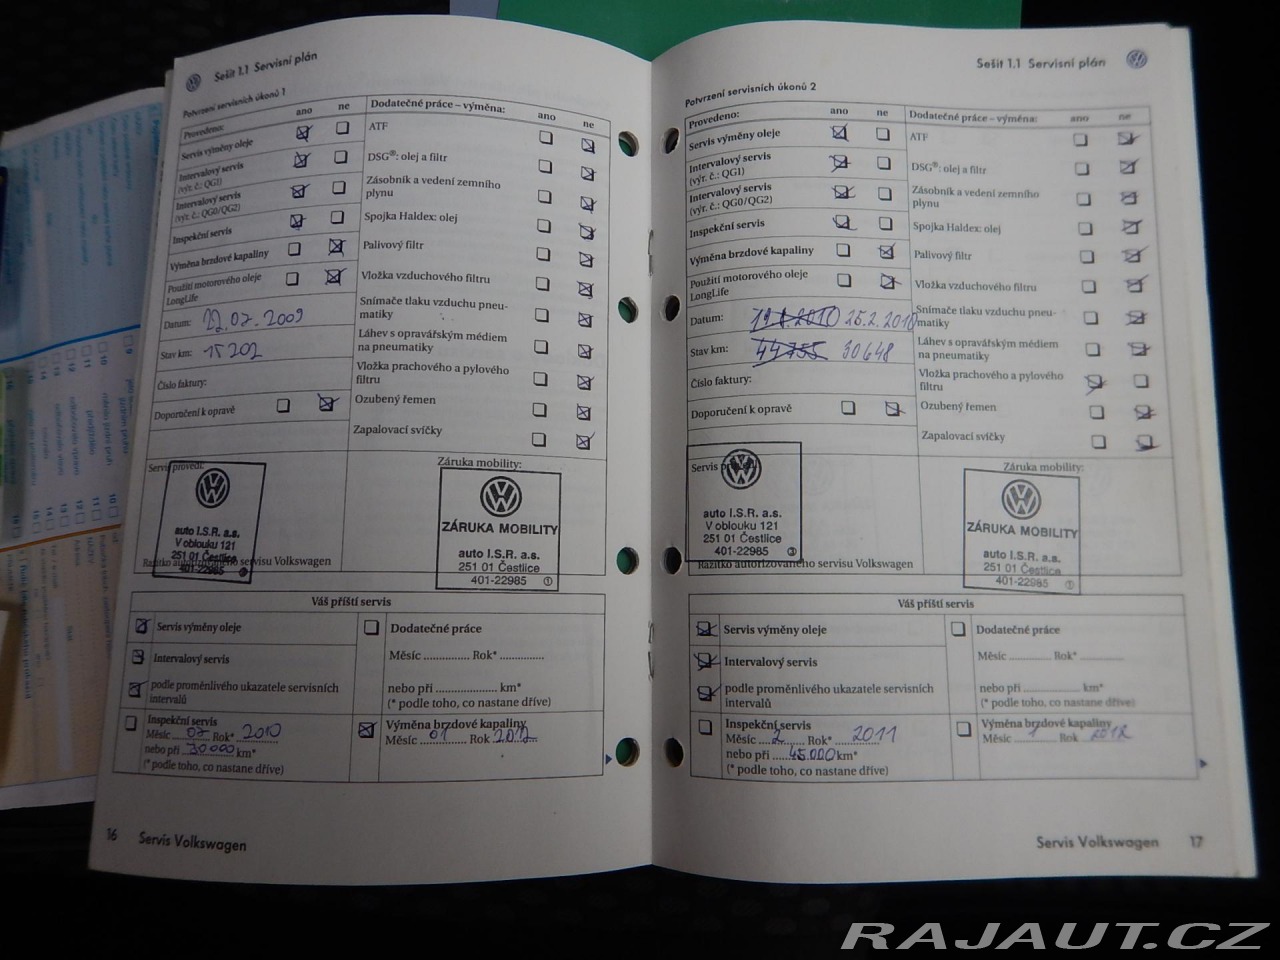 Sešit 1.1 Servisní plán
Potvrzení servisních úkonů 1
Provedeno: ano ne
Servis výměny oleje
Intervalový servis
(výr. č.: QG1)
Intervalový servis
(výr. č.: QG0/QG2)
Inspekční servis
Výměna brzdové kapaliny
Použití motorového oleje
LongLife
Datum: 22.07.2009
Stav km: 15202
Číslo faktury:
Doporučení k opravě
Dodatečné práce – výměna: ano ne
ATF
DSG®: olej a filtr
Zásobník a vedení zemního
plynu
Spojka Haldex: olej
Palivový filtr
Vložka vzduchového filtru
Snímače tlaku vzduchu pneu-
matiky
Láhev s opravářským médiem
na pneumatiky
Vložka prachového a pylového
filtru
Ozubený řemen
Zapalovací svíčky
Servis provedl:
auto I.S.R. a.s.
V oblouku 121
251 01 Čestlice
401-22985
Razítko autorizovaného servisu Volkswagen
Záruka mobility:
ZÁRUKA MOBILITY
auto I.S.R. a.s.
251 01 Čestlice
401-22985 ①
Váš příští servis
Servis výměny oleje
Intervalový servis
podle proměnlivého ukazatele servisních
intervalů
Inspekční servis
Měsíc 07 Rok* 2010
nebo při 30000 km*
(* podle toho, co nastane dříve)
Dodatečné práce
Měsíc .............. Rok* ..............
nebo při .................... km*
(* podle toho, co nastane dříve)
Výměna brzdové kapaliny
Měsíc 01 Rok 2012
16 Servis Volkswagen
Sešit 1.1 Servisní plán
Potvrzení servisních úkonů 2
Provedeno: ano ne
Servis výměny oleje
Intervalový servis
(výr. č.: QG1)
Intervalový servis
(výr. č.: QG0/QG2)
Inspekční servis
Výměna brzdové kapaliny
Použití motorového oleje
LongLife
Datum: 25.2.2010
Stav km: 44755 30648
Číslo faktury:
Doporučení k opravě
Dodatečné práce – výměna: ano ne
ATF
DSG®: olej a filtr
Zásobník a vedení zemního
plynu
Spojka Haldex: olej
Palivový filtr
Vložka vzduchového filtru
Snímače tlaku vzduchu pneu-
matiky
Láhev s opravářským médiem
na pneumatiky
Vložka prachového a pylového
filtru
Ozubený řemen
Zapalovací svíčky
Servis provedl:
auto I.S.R. a.s.
V oblouku 121
251 01 Čestlice
401-22985 ③
Razítko autorizovaného servisu Volkswagen
Záruka mobility:
ZÁRUKA MOBILITY
auto I.S.R. a.s.
251 01 Čestlice
401-22985 ①
Váš příští servis
Servis výměny oleje
Intervalový servis
podle proměnlivého ukazatele servisních
intervalů
Inspekční servis
Měsíc 2 Rok* 2011
nebo při 45.000 km*
(* podle toho, co nastane dříve)
Dodatečné práce
Měsíc .............. Rok* ..............
nebo při .................... km*
(* podle toho, co nastane dříve)
Výměna brzdové kapaliny
Měsíc 1 Rok 2012
Servis Volkswagen 17
RAJAUT.CZ